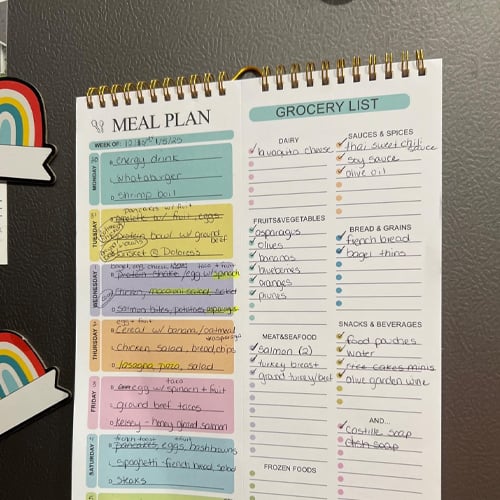 MEAL PLAN
WEEK OF:
MONDAY
energy drink
whataburger
shrimp boil
TUESDAY
pancakes w/ fruit
omelette w/ fruit, eggs
protein bowl w/ ground beef
brisket @ Doloress
WEDNESDAY
bagel, egg, cheese, taco + fruit
protein shake/egg w/spinach
chicken, macaroni salad, salad
salmon bites, potatoes, asparagus
THURSDAY
egg + fruit
cereal w/ banana/oatmeal
w/asparagus
chicken salad, bread, chips
lasagna, pizza, salad
FRIDAY
taco
egg w/ spinach + fruit
ground beef tacos
Kelsey - honey glazed salmon
SATURDAY
french toast fruit
pancakes, eggs, hashbrowns
spaghetti french bread, salad
steaks
GROCERY LIST
DAIRY
burrata cheese
FRUITS&VEGETABLES
asparagus
olives
bananas
blueberries
oranges
prunes
MEAT&SEAFOOD
salmon (2)
turkey breast
ground turkey/beef
FROZEN FOODS
SAUCES & SPICES
thai sweet chili sauce
soy sauce
olive oil
BREAD & GRAINS
french bread
bagel thins
SNACKS & BEVERAGES
food pouches
water
rice cakes minis
olive garden wine
AND...
castille soap
dish soap